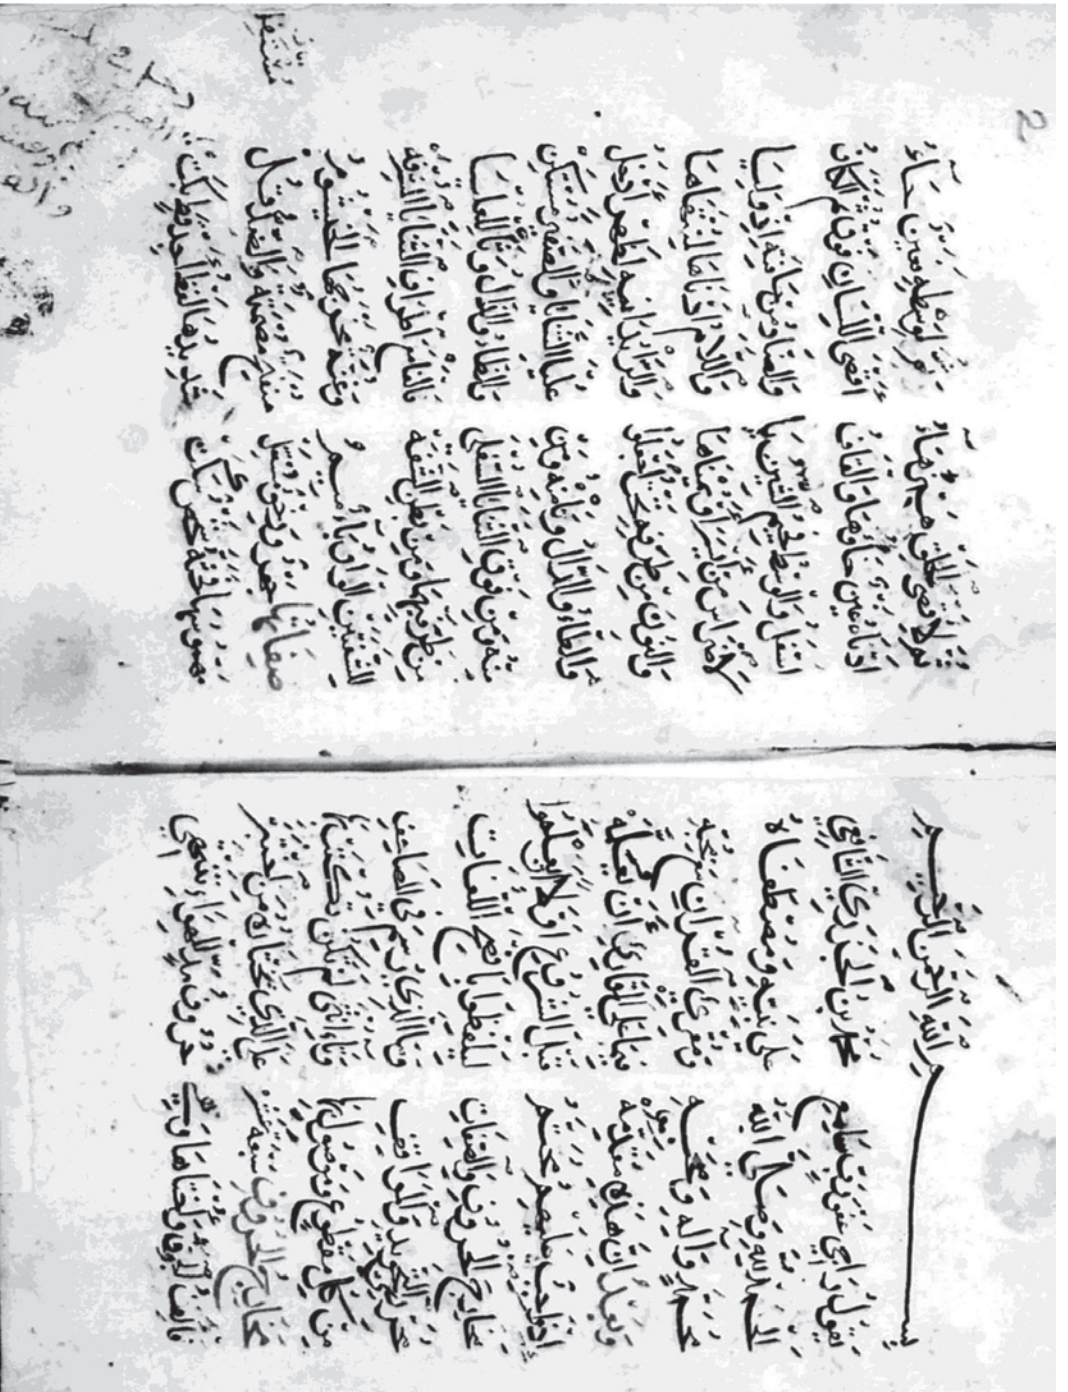 بسم الله الرحمن الرحيم
يقول راجي عفو رب سامع محمد بن الجزري الشافعي
الحمد لله وصلى الله على نبيه ومصطفاه
محمد وآله وصحبه ومقرئ القرآن مع محبه
وبعد إن هذه مقدمه فيما على القارئ أن يعلمه
إذ واجب عليهم محتم قبل الشروع أولا أن يعلموا
مخارج الحروف والصفات ليلفظوا بأفصح اللغات
محرري التجويد والمواقف وما الذي رسم في المصاحف
من كل مقطوع وموصول بها وتاء أنثى لم تكن تكتب بها
مخارج الحروف سبعة عشر على الذي يختاره من اختبر
فألف الجوف وأختاها وهي حروف مد للهواء تنتهي
2
ثم لأقصى الحلق همز هاء ثم لوسطه فعين حاء
أدناه غين خاؤها والقاف أقصى اللسان فوق ثم الكاف
أسفل والوسط فجيم الشين يا والضاد من حافته إذ وليا
لاضراس من أيسر أو يمناها واللام أدناها لمنتهاها
والنون من طرفه تحت اجعلوا والرا يدانيه لظهر أدخل
والطاء والدال وتا منه ومن عليا الثنايا والصفير مستكن
منه ومن فوق الثنايا السفلى والظاء والذال وثا للعليا
من طرفيهما ومن بطن الشفه فالفا مع اطراف الثنايا المشرفه
للشفتين الواو باء ميم وغنة مخرجها الخيشوم
صفاتها جهر ورخو مستفل منفتح مصمتة والضد قل
مهموسها فحثه شخص سكت شديدها لفظ أجد قط بكت